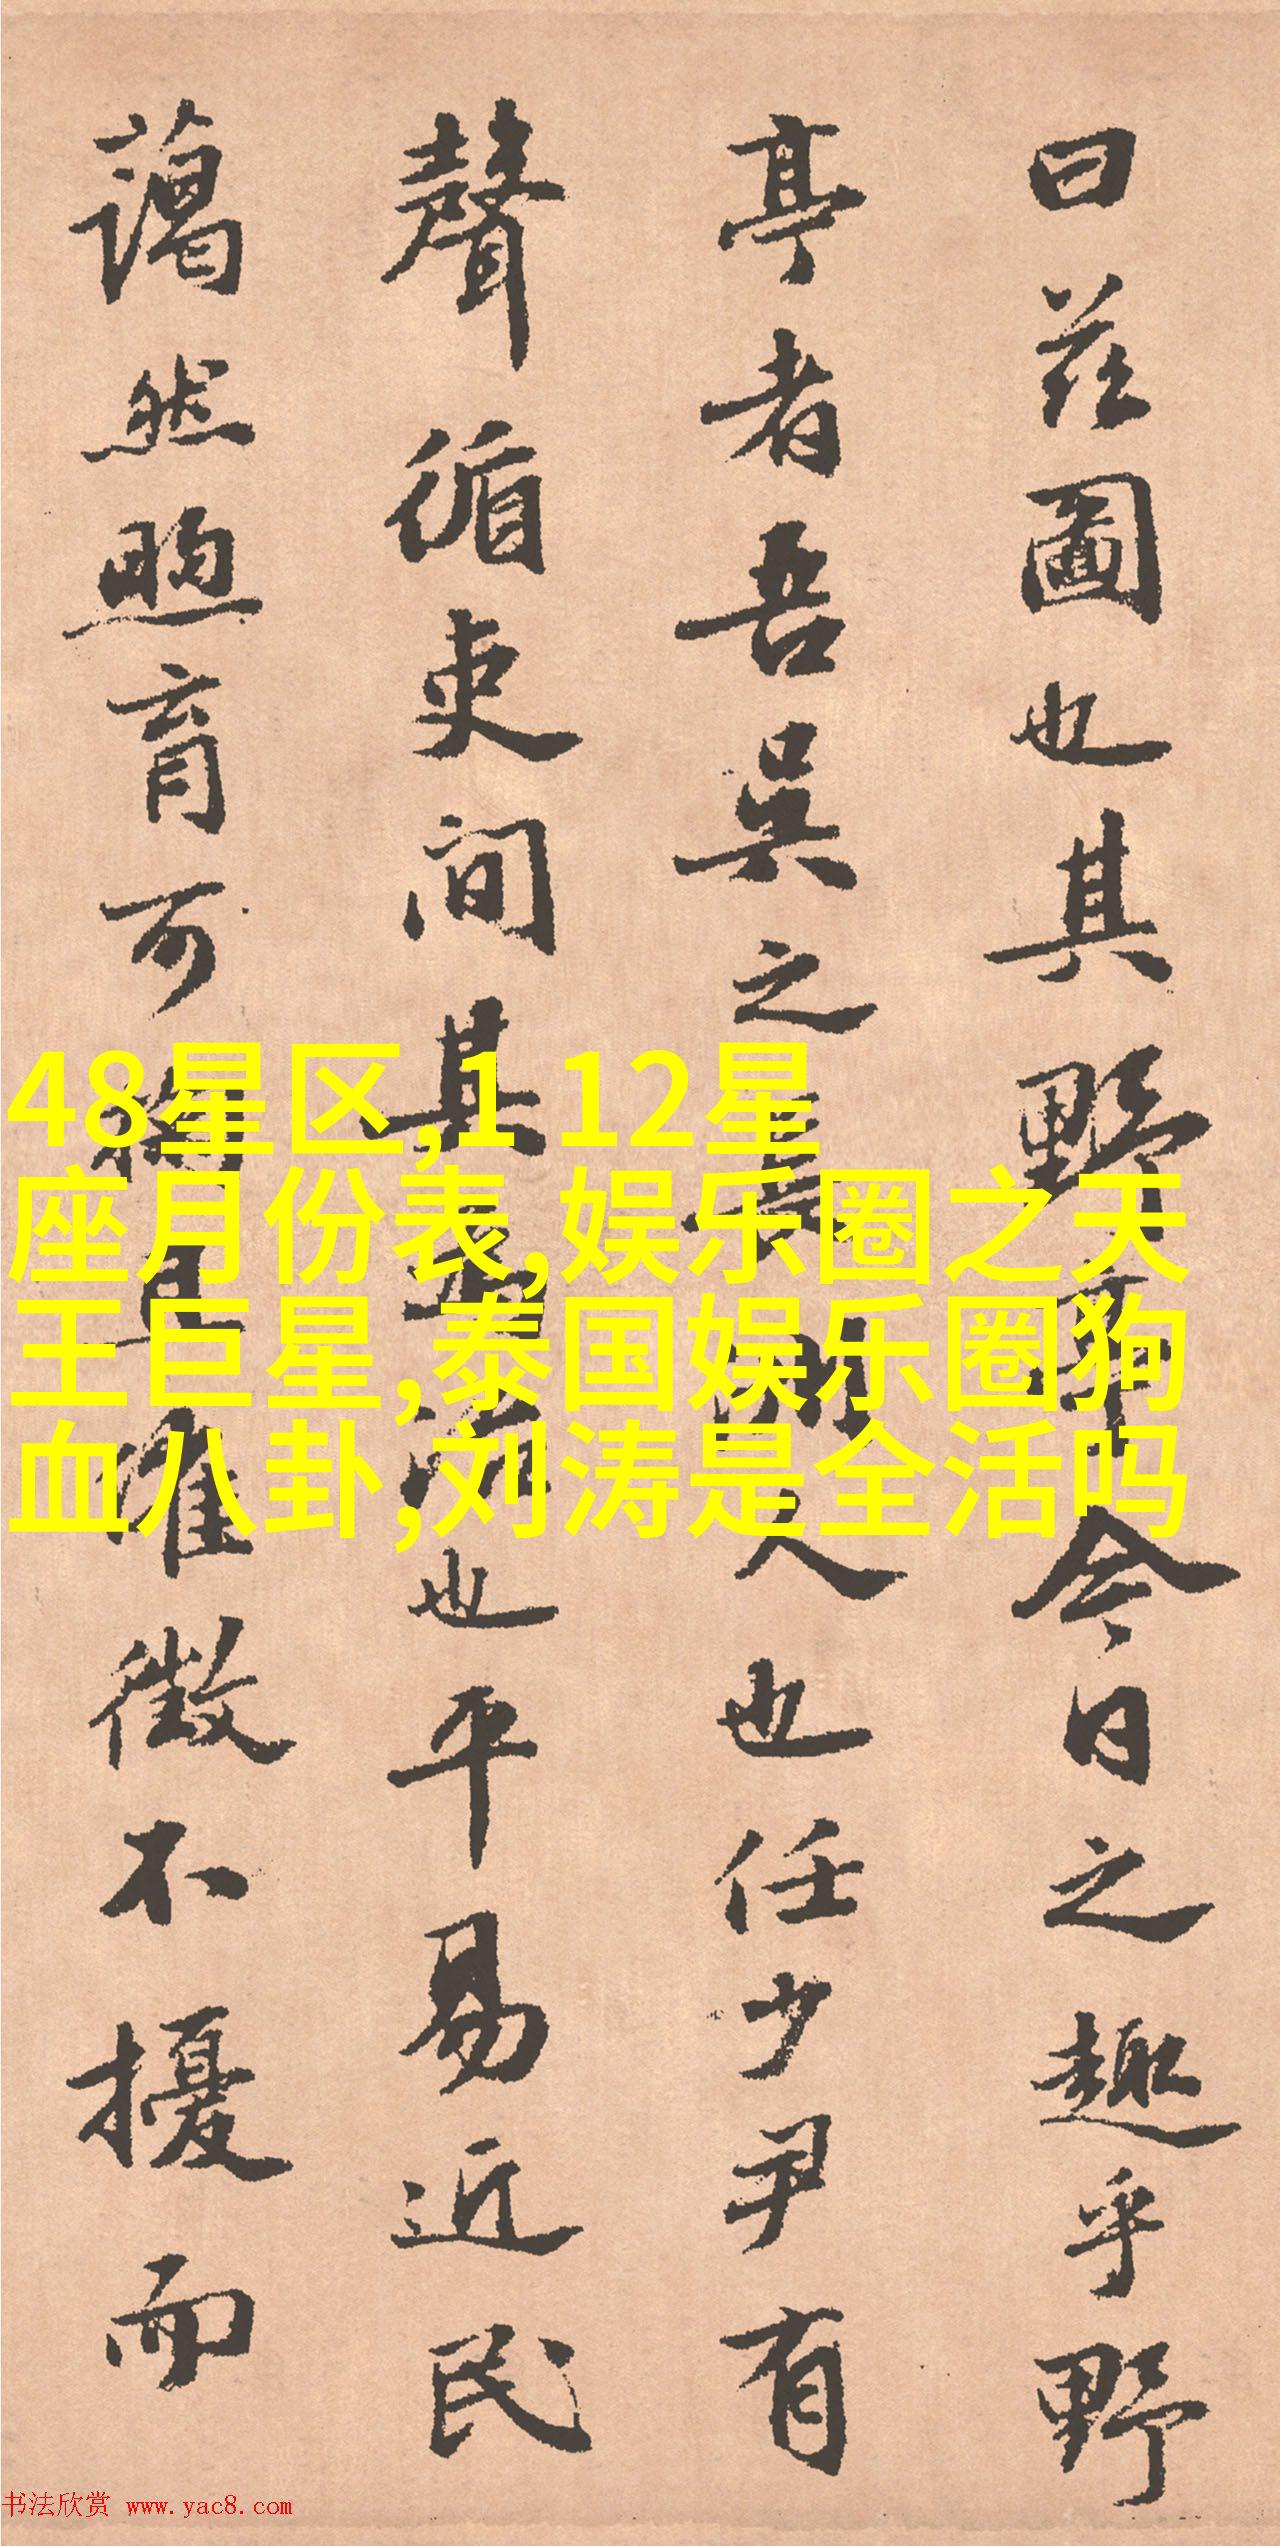 曰茲圖也其野亭今日之趣乎野
亭者吾吳之長洲人也任少尹有
聲循吏间其為治也平易近民
藹然煦育可掬且催徵不擾而
48星区,1 12星
座月份表,娱乐圈之天
王巨星,泰国娱乐圈狗
血八卦,刘涛是全活吗
书法欣赏 www.yac8.com